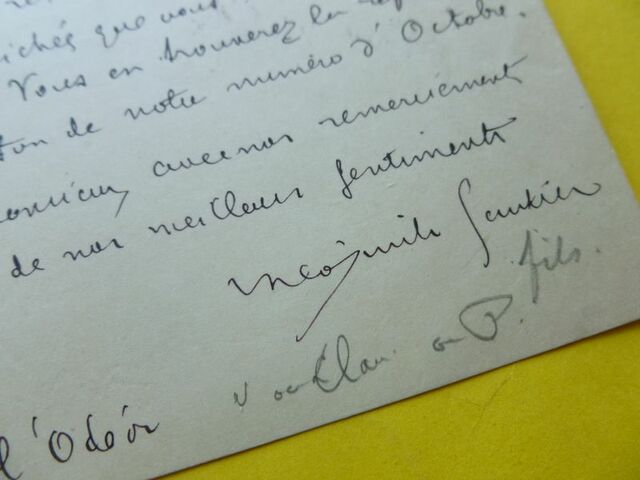 ichés que vous
Vous en trouverez la rep
tion de notre numéro d'Octobre.
onsieur, avec nos remerciements
de nos meilleurs sentiments
Gautier
fils.
ou P.
l'Odéon